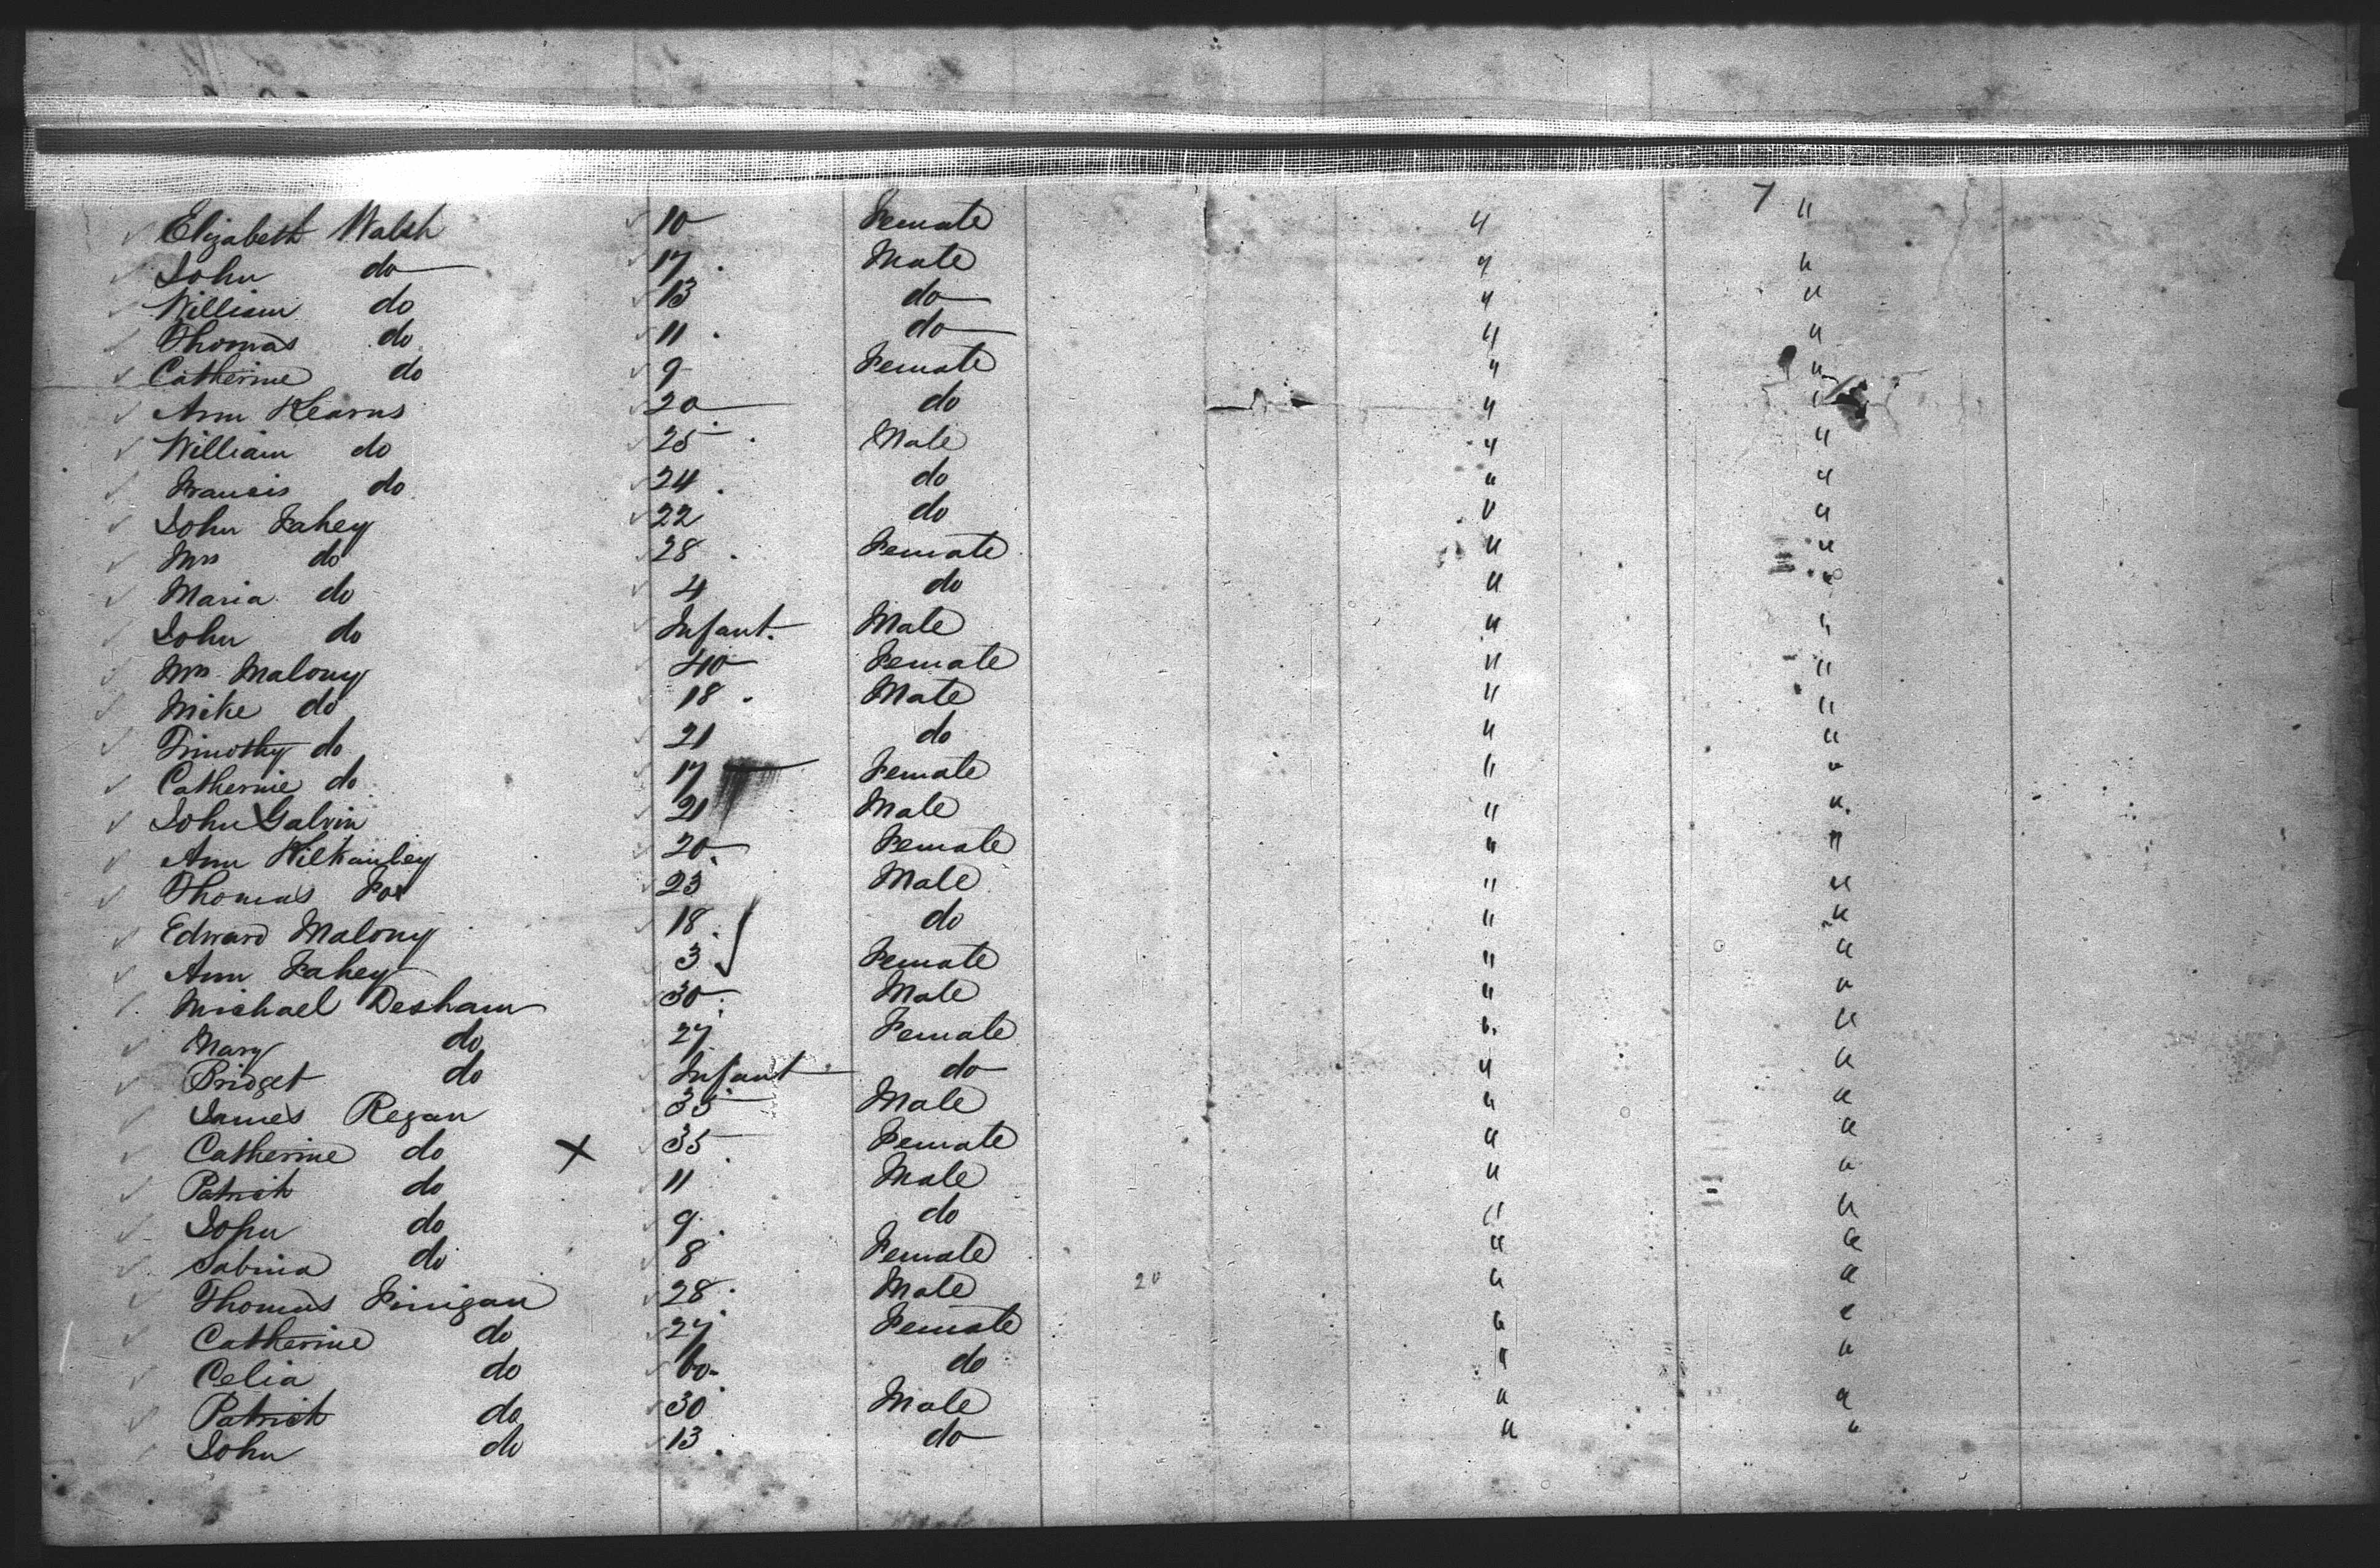 7
Elizabeth Walsh 10 Female " "
John do 17 Male " "
William do 13 do " "
Thomas do 11 do " "
Catherine do 9 Female " "
Ann Kearns 20 do " "
William do 25 Male " "
Francis do 24 do " "
John Fahey 22 do " "
Mrs do 28 Female " "
Maria do 4 do " "
John do Infant Male " "
Mrs Malony 40 Female " "
Mike do 18 Male " "
Timothy do 21 do " "
Catherine do 17 Female " "
John Galvin 21 Male " "
Ann 20 Female " "
Thomas Fox 23 Male " "
Edward Malony 18 do " "
Ann Fahey 3 Female " "
Michael Desham 30 Male " "
Mary do 27 Female " "
Bridget do Infant do " "
James Regan 35 Male " "
Catherine do X 35 Female " "
Patrick do 11 Male " "
John do 9 do " "
Sabina do 8 Female " "
Thomas Finigan 28 Male 20 " "
Catherine do 27 Female " "
Celia do 60 do " "
Patrick do 30 Male " "
John do 13 do " "